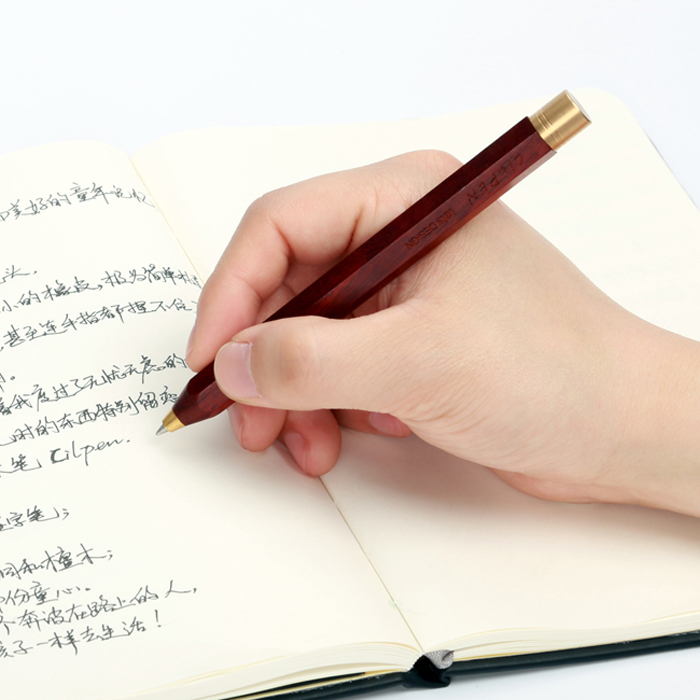 美好的童年记忆
头.
小的橡皮,极为简单
甚至连手指都握不住
我度过了无忧无虑的
时的东西特别留恋
笔 Cilpen.
字笔);
铜和檀木;
份童心.
奔波在路上的人,
孩子一样去生活!
LGN DESIGN